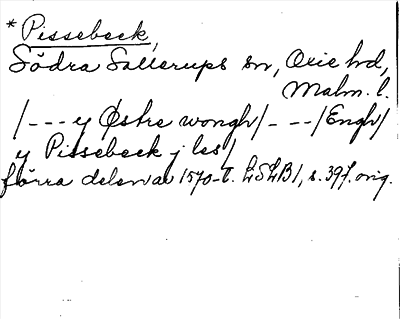 * Pissebeck,
Södra Sallerups sn, Oxie hd,
Malm. l.
/--- y Østre wongh/- --/Engh/
y Pissebeck j les/
förra delen av 1570-t. LSLB1, s. 397. orig.